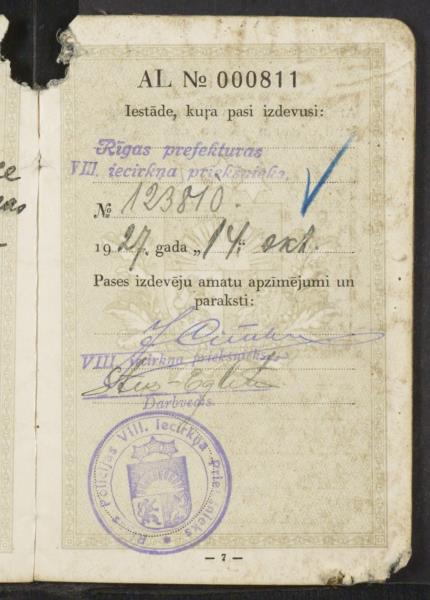 AL № 000811
Iestāde, kuŗa pasi izdevusi:
Rīgas prefekturas
VIII. iecirkņa priekšnieks.
№ 123810.
1927. gada „14." okt.
Pases izdevēju amatu apzīmējumi un
paraksti:
VIII. iecirkņa priekšnieks
Darbvedis
Policijas VIII. Iecirkņa Priekšnieks
— 7 —